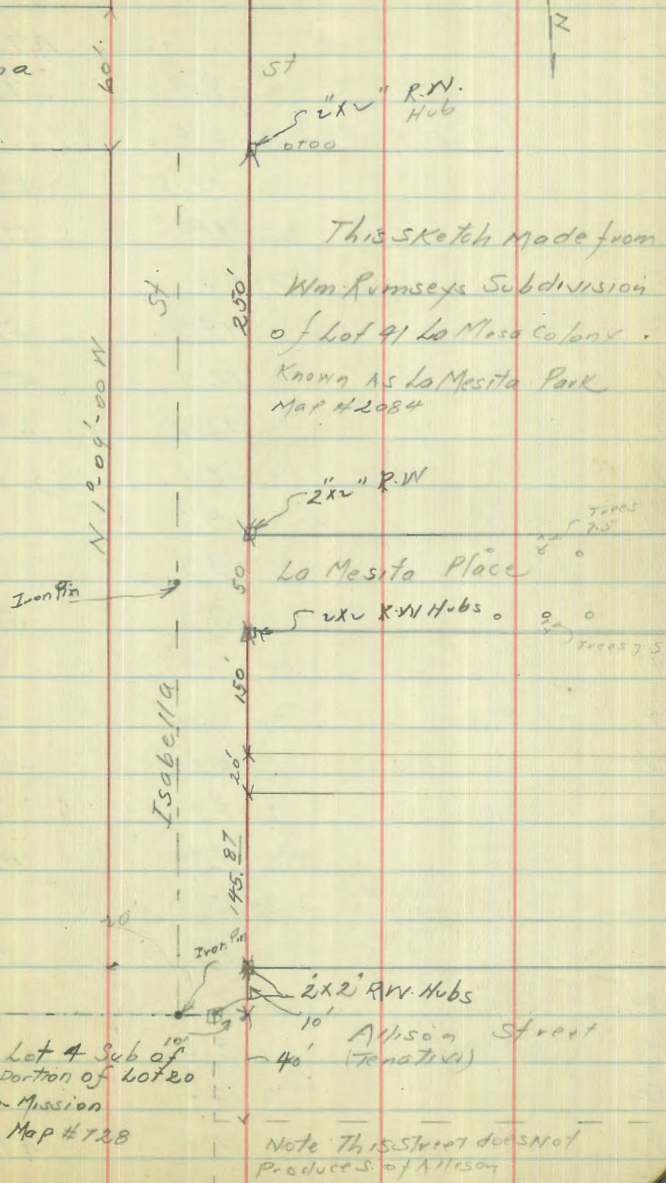 N
60'
St
2"x2" R.W.
Hub
0+00
This Sketch Made from
Wm. Rumseys Subdivision
of Lot 41 La Mesa Colony.
Known As La Mesita Park
Map #2084
St.
250'
N 1°-09'-00 W
2"x2" R.W
Trees
7.5
La Mesita Place
50
Iron Pin
2x2 R.W Hubs
Trees 7.5
150'
Isabella
20'
145.87
20'
Iron Pin
2"x2" R.W. Hubs
10'
10'
Allison Street
(Tenativi)
40'
Lot 4 Sub of
Portion of Lot 20
Mission
Map #728
Note This Street does Not
Produce S. of Allison